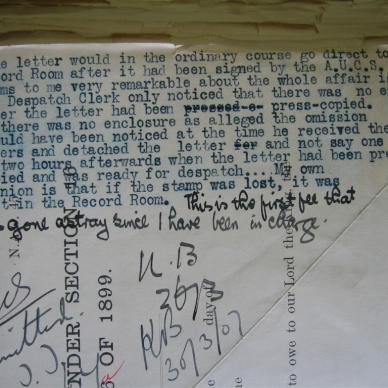 e letter would in the ordinary course go direct to
ord Room after it had been signed by the A.U.C.S.
ms to me very remarkable about the whole affair i
Despatch Clerk only noticed that there was no e
er the letter had been pressed e press-copied.
here was no enclosure as alleged the omission
uld have been noticed at the time he received the
ers and detached the letter for and not say one
two hours afterwards when the letter had been pre
ied and was ready for despatch....My own
nion is that if the stamp was lost, it was
t in the Record Room. This is the first fee that
gone astray since I have been in charge.
K.B
30/3
KB
30/3/07
NDER SECTION
OF 1899.
day of
to owe to our Lord the